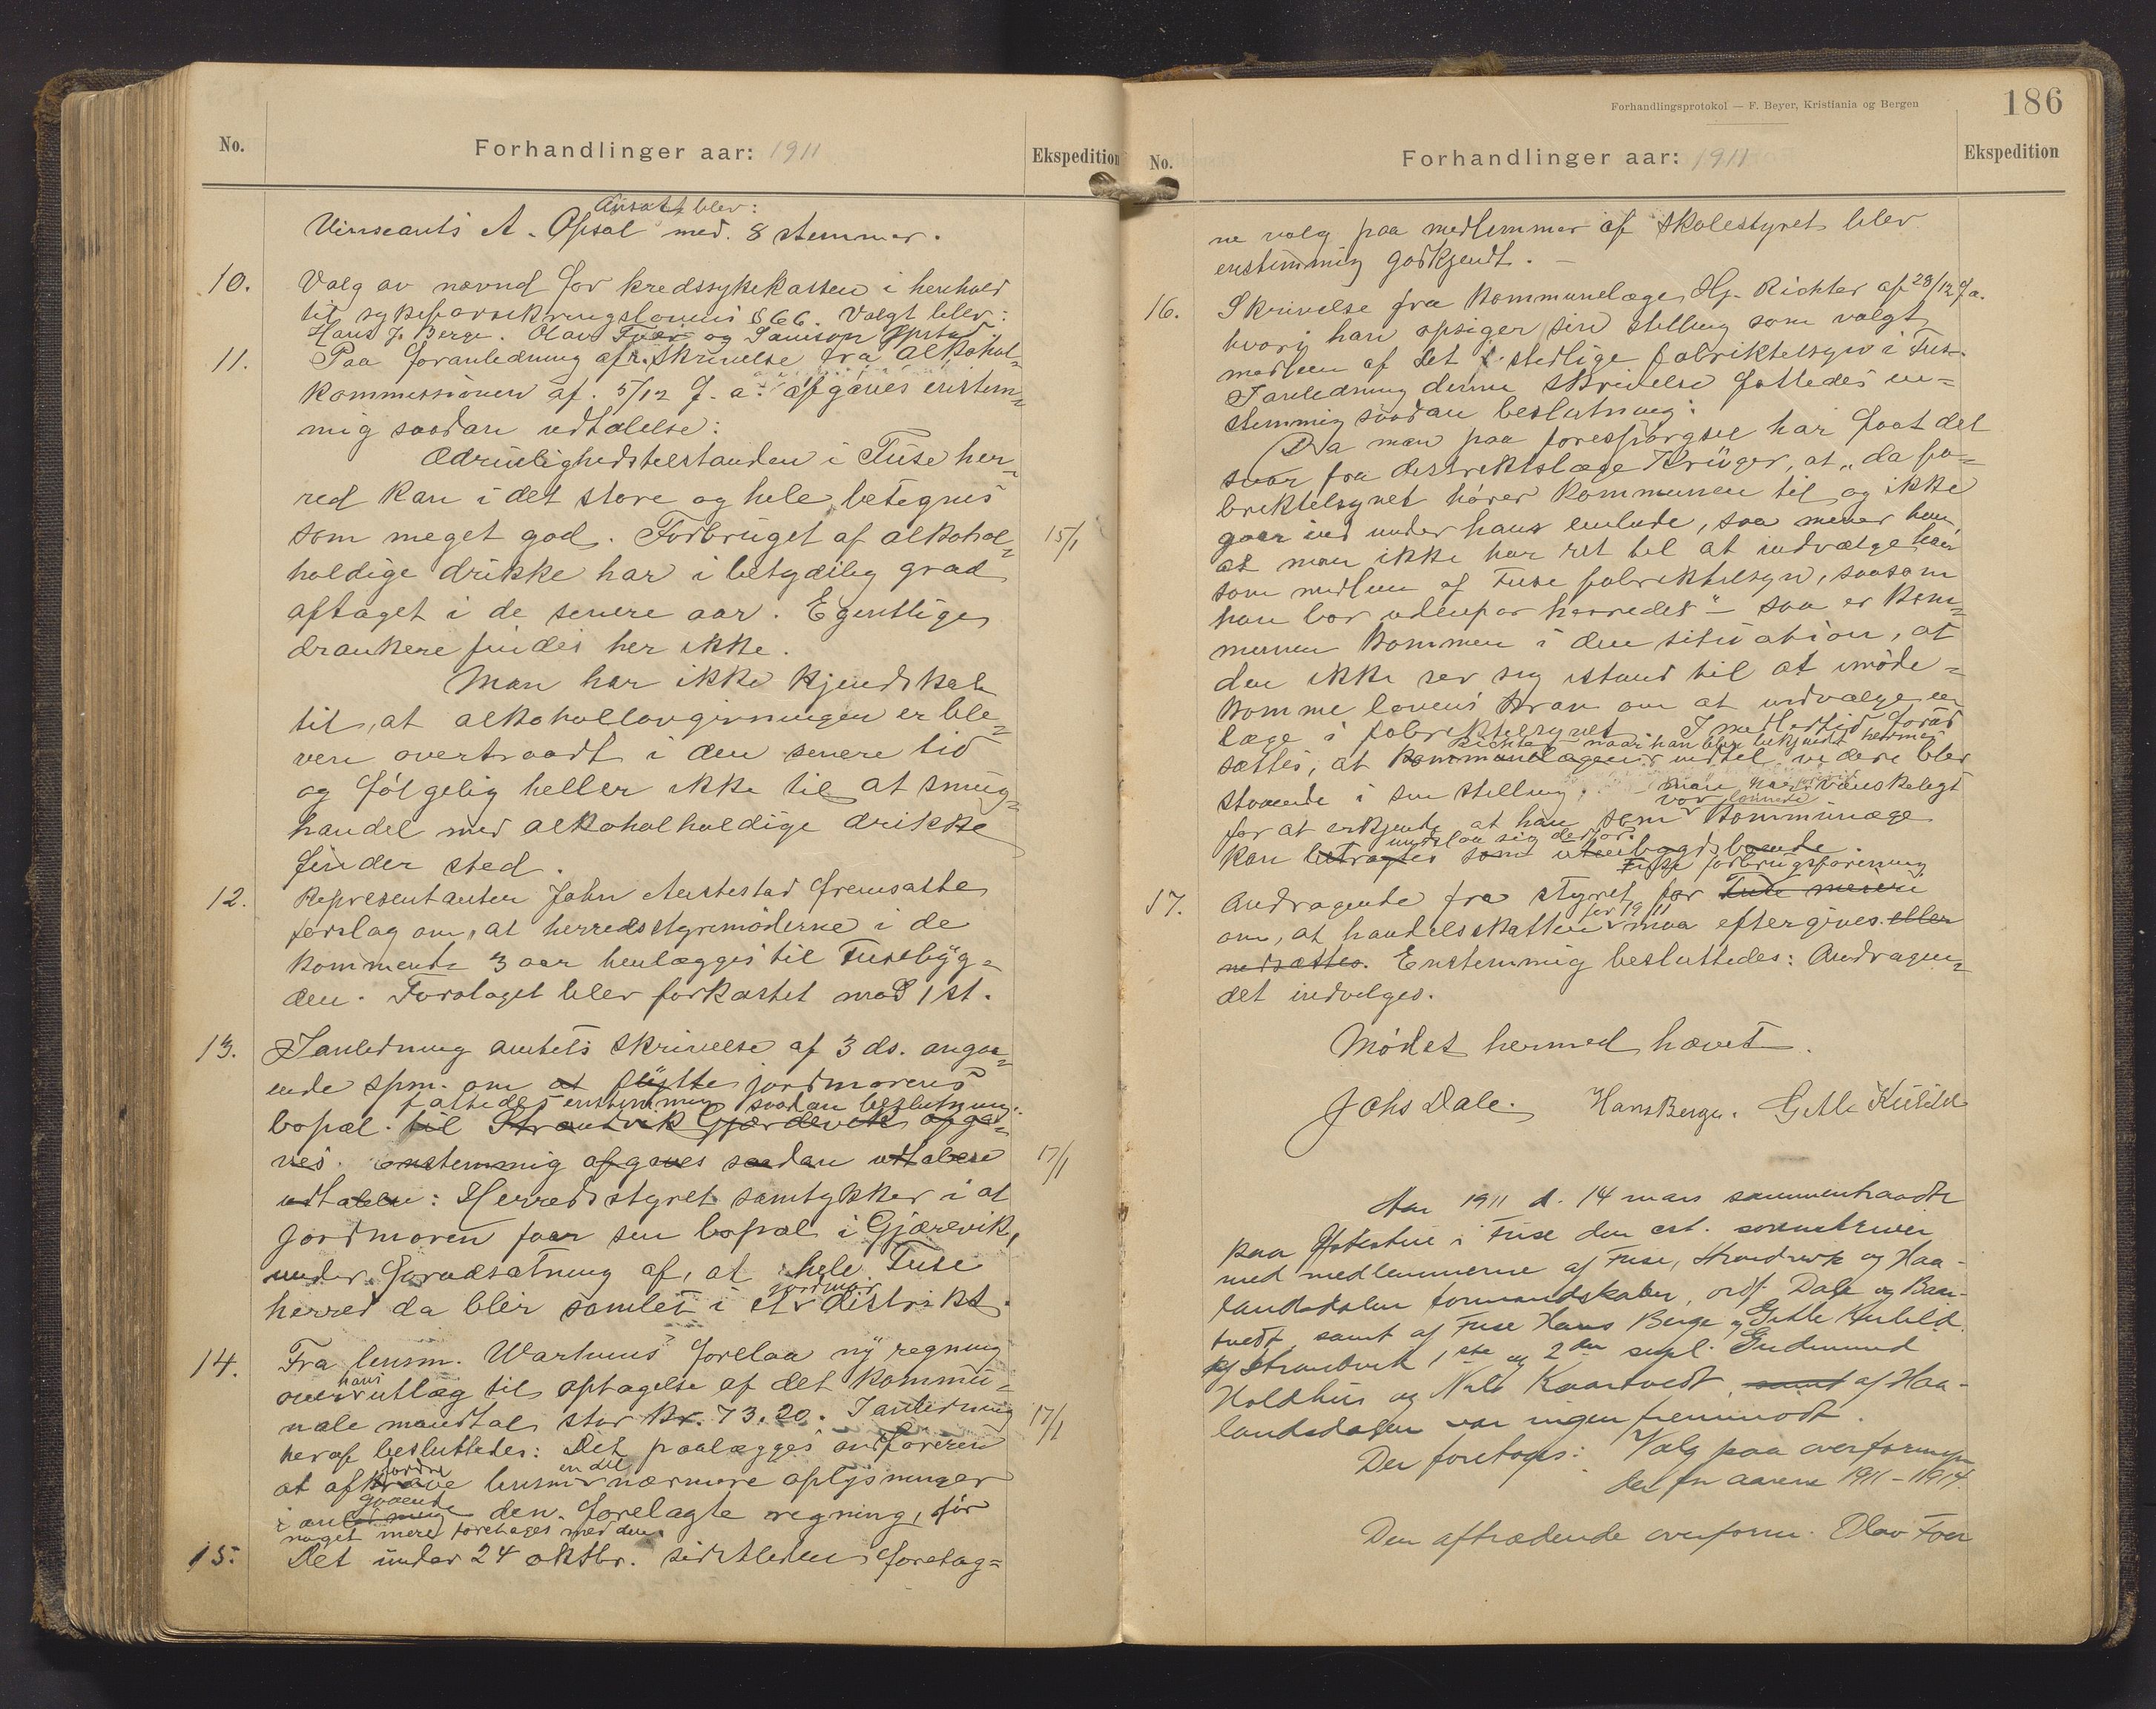 No.
Forhandlinger aar: 1911
Ekspedition
Ansatt blev:
Vinseants A. Opsal med 8 stemmer.
10. Valg av nævnd for kredssykekassen i henhold
til sykeforsikringslovens § 66. Valgt blev:
Hans J. Berge. Olav Fuær og Samson
11. Paa foranledning af skrivelse fra alkohol-
kommissionen af 5/12 f. a. afgaves enstem-
mig saadan udtalelse:
Ædruelighedstilstanden i Fuse her-
red kan i det store og hele betegnes
som meget god. Forbruget af alkohol-
15/1
holdige drikke har i betydelig grad
aftaget i de senere aar. Egentlige
drankere findes her ikke.
Man har ikke kjendskab
til, at alkohollovgivningen er ble-
ven overtraadt i den senere tid
og følgelig heller ikke til at smug-
handel med alkoholholdige drikke
finder sted.
12. Representanten John Austestad fremsatte
forslag om, at herredsstyremøderne i de
kommende 3 aar henlægges til Fusebyg-
den. Forslaget blev forkastet mod 1 st.
13. I anledning amtets skrivelse af 3 ds. angaa-
ende spm. om at flytte jordmorens
fattedes enstemmig saadan beslutning:
bopæl. til Strandvik Gjærdevik afga-
ves. enstemmig afgaves saadan udtalelse
17/1
udtalelse: Herredsstyret samtykker i at
jordmoren faar sin bopæl i Gjærevik,
under forudsætning af, at hele Fuse
jordmor
herred da blir samlet i et distrikt.
14. Fra lensm. Warhuus forelaa ny regning
hans
over utlæg til optagelse af det kommu-
nale mandtal stor kr. 73.20. I anledning
17/1
heraf besluttedes: Det paalægges ordføreren
fordre en del
at afkræve lensm. nærmere oplysninger
gaaende
i anledning den forelagte regning, før
noget mere foretages med den.
15. Det under 24 oktbr. sidstleden foretag-
Forhandlingsprotokol — F. Beyer, Kristiania og Bergen
186
No.
Forhandlinger aar: 1911
Ekspedition
ne valg paa medlemmer af skolestyret blev
enstemmig godkjendt. —
16. Skrivelse fra kommunelæge Hj. Richter af 28/12 f. a.
hvori han opsiger sin stilling som valgt
medlem af det stedlige fabriktilsyn i Fuse.
I anledning denne skrivelse fattedes en-
stemmig saadan beslutning:
Da man paa forespørgsel har faat det
svar fra distriktslæge Krüger, at „da fa-
briktilsynet hører kommunen til og ikke
gaar ind under hans embede, saa mener han,
at man ikke har ret til at indvælge ham
som medlem af Fuse fabriktilsyn, saasom
han bor udenfor herredet" — saa er kom-
munen kommen i den situation, at
den ikke ser sig istand til at imøde-
komme lovens krav om at indvælge en
læge i fabriktilsynet. Imidlertid forud
Richter naar han blir bekjendt hermed
sættes, at kommunelægen indtil videre blir
staaende i sin stilling. man har vanskelegt
vor lønnede
for at erkjende at han som kommunelæge
undslaa sig derfor.
kan betragtes som utenbygdsboende.
Fuse forbrugsforening
17. Andragende fra styret for Fuse meieri
for 1911
om, at handelsskatten maa eftergives eller
nedsættes. Enstemmig besluttedes: Andragen-
det indvilges.
Mødet hermed hævet.
Johs Dale. Hans Berge. Gitle Kilild
Aar 1911 d. 14 mars sammentraadte
paa i Fuse den cst. sorenskriver
med medlemmerne af Fuse, Strandvik og Haa-
landsdalen formandskaber, ordf. Dale og
samt af Fuse Hans Berge og Gitle Kilild
af Strandvik 1ste og 2den supl. Gudmund
Holdhus og Nils Kaartvedt, samt af Haa-
landsdalen var ingen fremmødt.
Der foretoges: Valg paa overformyn-
der for aarene 1911–1914.
Den aftrædende overform. Olav